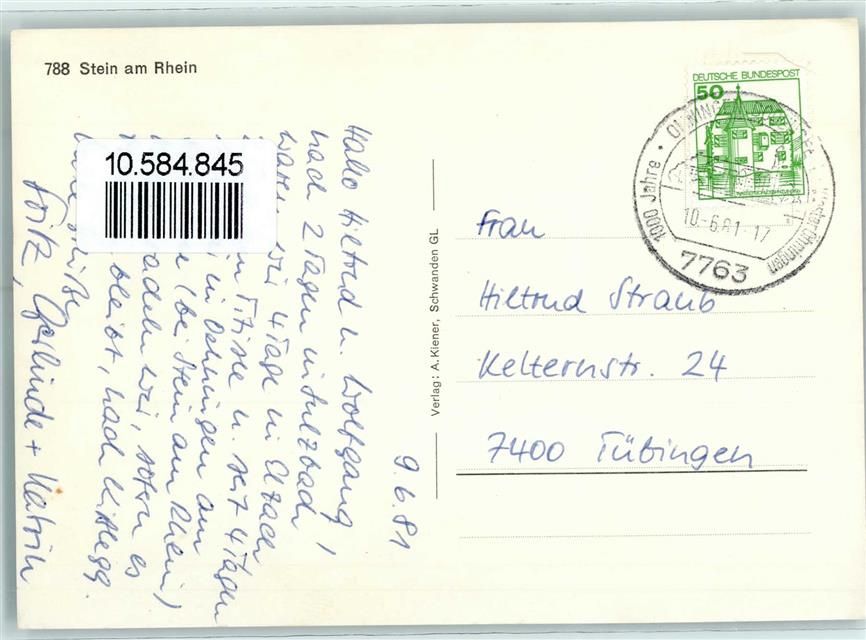 788 Stein am Rhein
10.584.845
9.6.81
Hallo Hiltrud u. Wolfgang,
nach 2 Tagen in Sulzbach
waren wir 4 Tage in Elzach
Titisee u. seit 4 Tagen
in Oehningen am
(bei Stein am Rhein)
radeln wir, sofern es
bleibt, nach Kißlegg.
Fritz, Gerlinde + Katrin
Verlag: A. Kiener, Schwanden GL
DEUTSCHE BUNDESPOST
50
1000 Jahre
10.-6.81-17
7763
Frau
Hiltrud Straub
Kelternstr. 24
7400 Tübingen